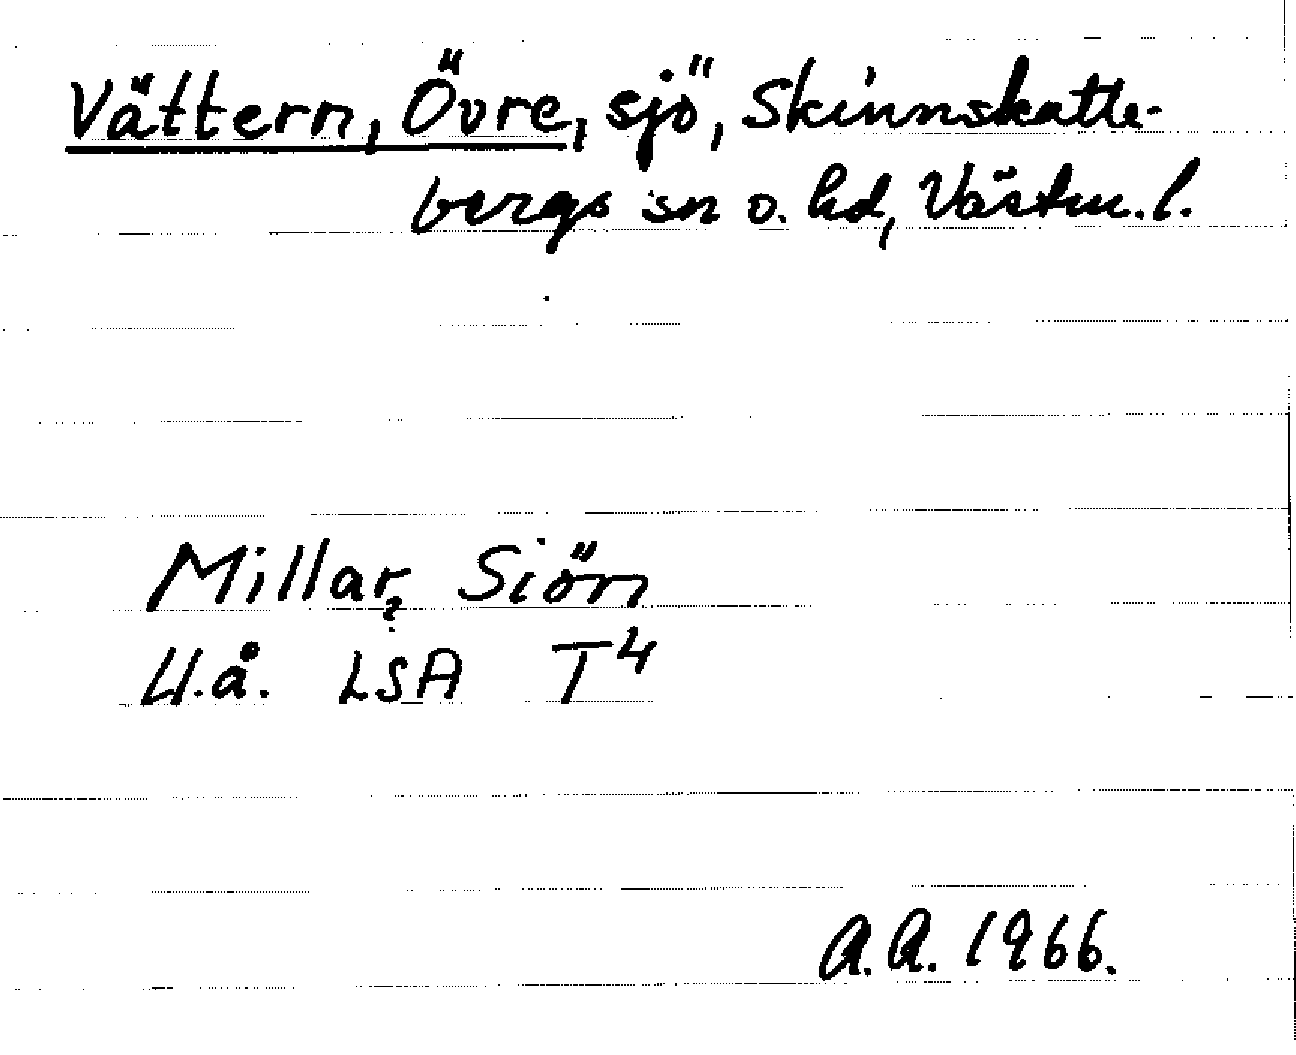 Vättern, Övre, sjö, Skinnskatte-
bergs sn o. hd, Västm. l.
Millar, Siön
U.å. LSA T4
A.A. 1966.